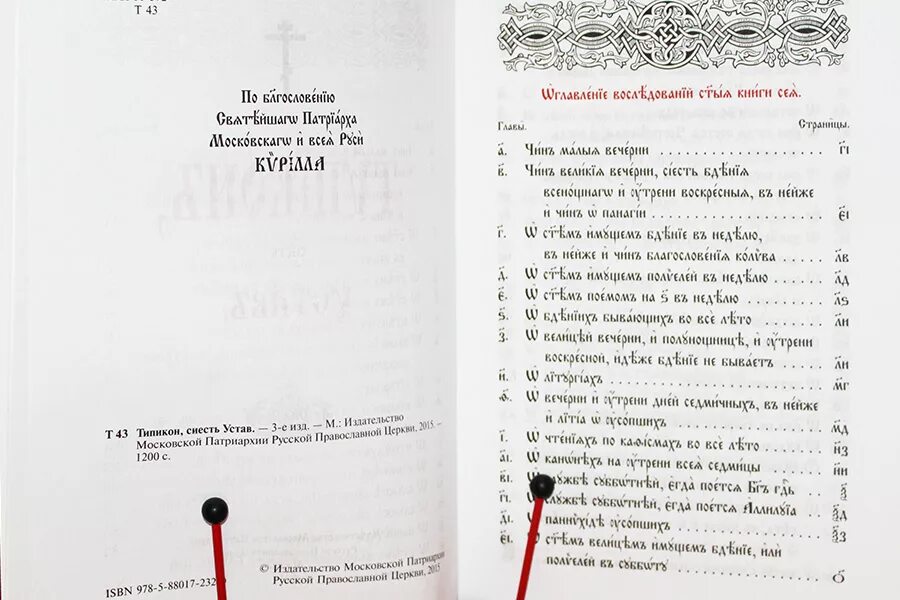 Т 43
По бл҃гослове́нїю
Свѧтѣ́йшагѡ Патрїа́рха
Моско́вскагѡ и҆ всеѧ̀ Рꙋси́
КѴРІ́ЛЛА
Т 43 Типикон, сиесть Устав. — 3-е изд. — М.: Издательство
Московской Патриархии Русской Православной Церкви, 2015. –
1200 с.
© Издательство Московской Патриархии
Русской Православной Церкви, 2015
ISBN 978-5-88017-232
Ѡ҆главле́нїе вослѣ́дованїй ст҃ы́ѧ кни́ги сеѧ̀.
Главы̀. Страни́цы.
а҃. Чи́нъ ма́лыѧ вече́рни . . . . . г҃і
в҃. Чи́нъ вели́кїѧ вече́рни, сїе́сть бдѣ́нїѧ
всено́щнагѡ и҆ ᲂу҆́трени воскре́сныѧ, въ не́йже
и҆ чи́нъ ѡ҆ панагі́и . . . . . є҃і
г҃. Ѡ҆ ст҃ѣ́мъ и҆мꙋ́щемъ бдѣ́нїе въ недѣ́лю,
въ не́йже и҆ чи́нъ благослове́нїѧ ко́лѵва . . . . . л҃в
д҃. Ѡ҆ ст҃ѣ́мъ и҆мꙋ́щемъ полѷеле́й въ недѣ́лю . . . . . л҃д
є҃. Ѡ҆ ст҃ѣ́мъ пое́момъ на ѕ҃ въ недѣ́лю . . . . . л҃ѕ
ѕ҃. Ѡ҆ бдѣ́нїихъ быва́ющихъ во всѐ лѣ́то . . . . . л҃и
з҃. Ѡ҆ вели́цѣй вече́рни, и҆ полꙋ́нощницѣ, и҆ ᲂу҆́трени
воскре́сной, и҆дѣ́же бдѣ́нїе не быва́етъ . . . . . л҃и
и҃. Ѡ҆ лїтꙋргі́ахъ . . . . . м҃г
ѳ҃. Ѡ҆ вече́рни и҆ ᲂу҆́трени дне́й седми́чныхъ, въ не́йже
и҆ лїтїа̀ ѡ҆ ᲂу҆со́пшихъ . . . . . м҃д
і҃. Ѡ҆ чте́нїѧхъ по каѳі́смахъ во всѐ лѣ́то . . . . . н҃з
а҃і. Ѡ҆ канѡ́нѣхъ на ᲂу҆́трени всеѧ̀ седми́цы . . . . . н҃и
в҃і. Ѡ҆ слꙋ́жбѣ сꙋббѡ́тнѣй, є҆гда̀ пое́тсѧ Бг҃ъ гд҇ь . . ѯ҃
г҃і. Ѡ҆ слꙋ́жбѣ сꙋббѡ́тнѣй, є҆гда̀ пое́тсѧ А҆ллилꙋ́їа . . ѯ҃д
д҃і. Ѡ҆ паннѷхі́дѣ ᲂу҆со́пшихъ . . . . . ѯ҃з
є҃і. Ѡ҆ ст҃ѣ́мъ вели́цѣмъ и҆мꙋ́щемъ бдѣ́нїе, и҆лѝ
полѷеле́й въ сꙋббѡ́тꙋ . . . . . о҃